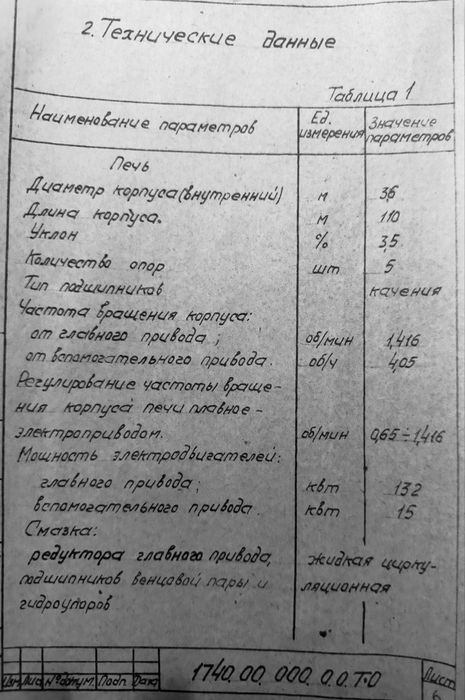 2. Технические данные
Таблица 1
Наименование параметров Ед. измерения Значение параметров
Печь
Диаметр корпуса (внутренний) м 3,6
Длина корпуса. м 110
Уклон % 3,5
Количество опор шт 5
Тип подшипников качения
Частота вращения корпуса:
от главного привода; об/мин 1,416
от вспомогательного привода. об/ч 4,05
Регулирование частоты враще-
ния корпуса печи плавное -
электроприводом. об/мин 0,65÷1,416
Мощность электродвигателей:
главного привода; квт 132
вспомогательного привода. квт 15
Смазка:
редуктора главного привода, жидкая цирку-
подшипников венцовой пары и ляционная
гидроупоров
Изм Лист № докум. Подп. Дата 1740.00.000.0.0.ТО Лист
6